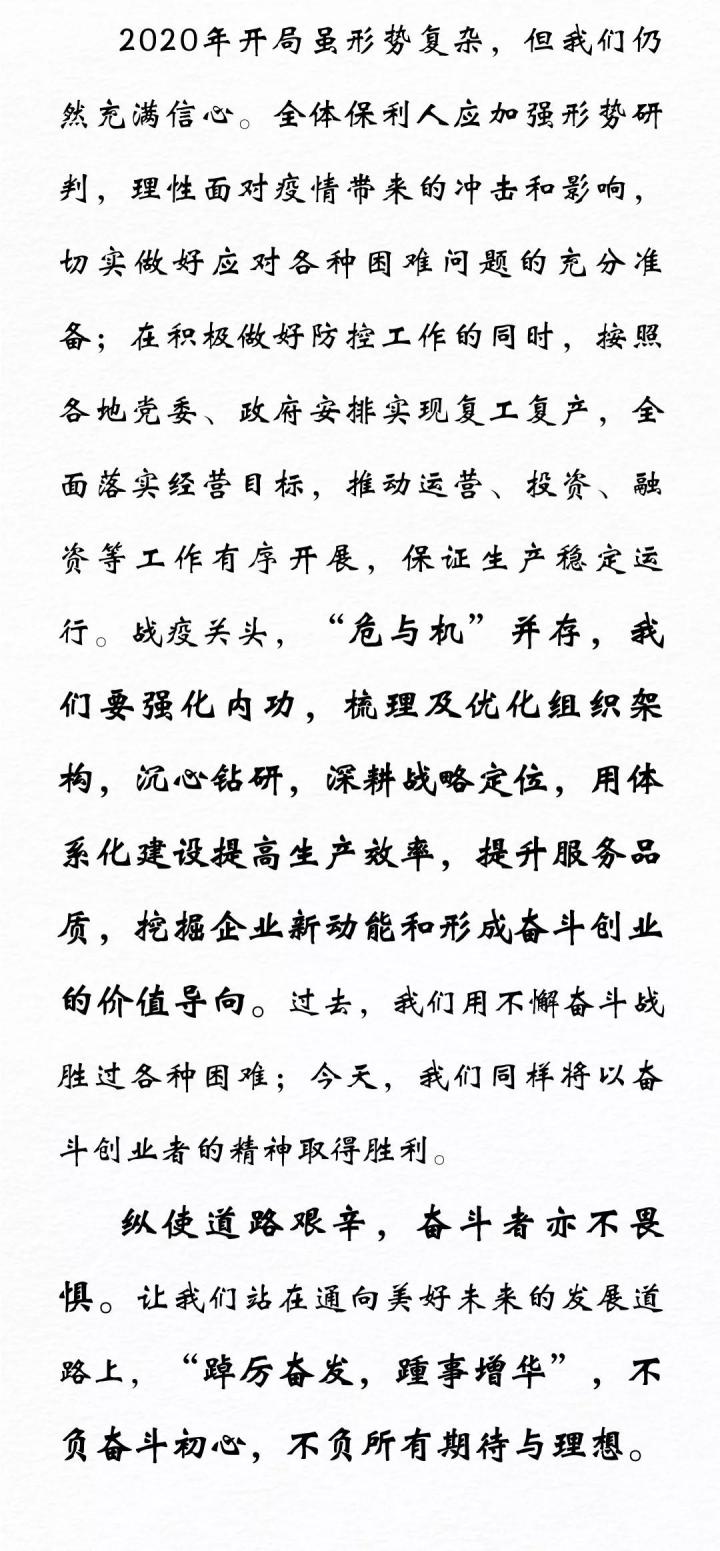 2020年开局虽形势复杂，但我们仍
然充满信心。全体保利人应加强形势研
判，理性面对疫情带来的冲击和影响，
切实做好应对各种困难问题的充分准
备；在积极做好防控工作的同时，按照
各地党委、政府安排实现复工复产，全
面落实经营目标，推动运营、投资、融
资等工作有序开展，保证生产稳定运
行。战疫关头，“危与机”并存，我
们要强化内功，梳理及优化组织架
构，沉心钻研，深耕战略定位，用体
系化建设提高生产效率，提升服务品
质，挖掘企业新动能和形成奋斗创业
的价值导向。过去，我们用不懈奋斗战
胜过各种困难；今天，我们同样将以奋
斗创业者的精神取得胜利。
纵使道路艰辛，奋斗者亦不畏
惧。让我们站在通向美好未来的发展道
路上，“踔厉奋发，踵事增华”，不
负奋斗初心，不负所有期待与理想。